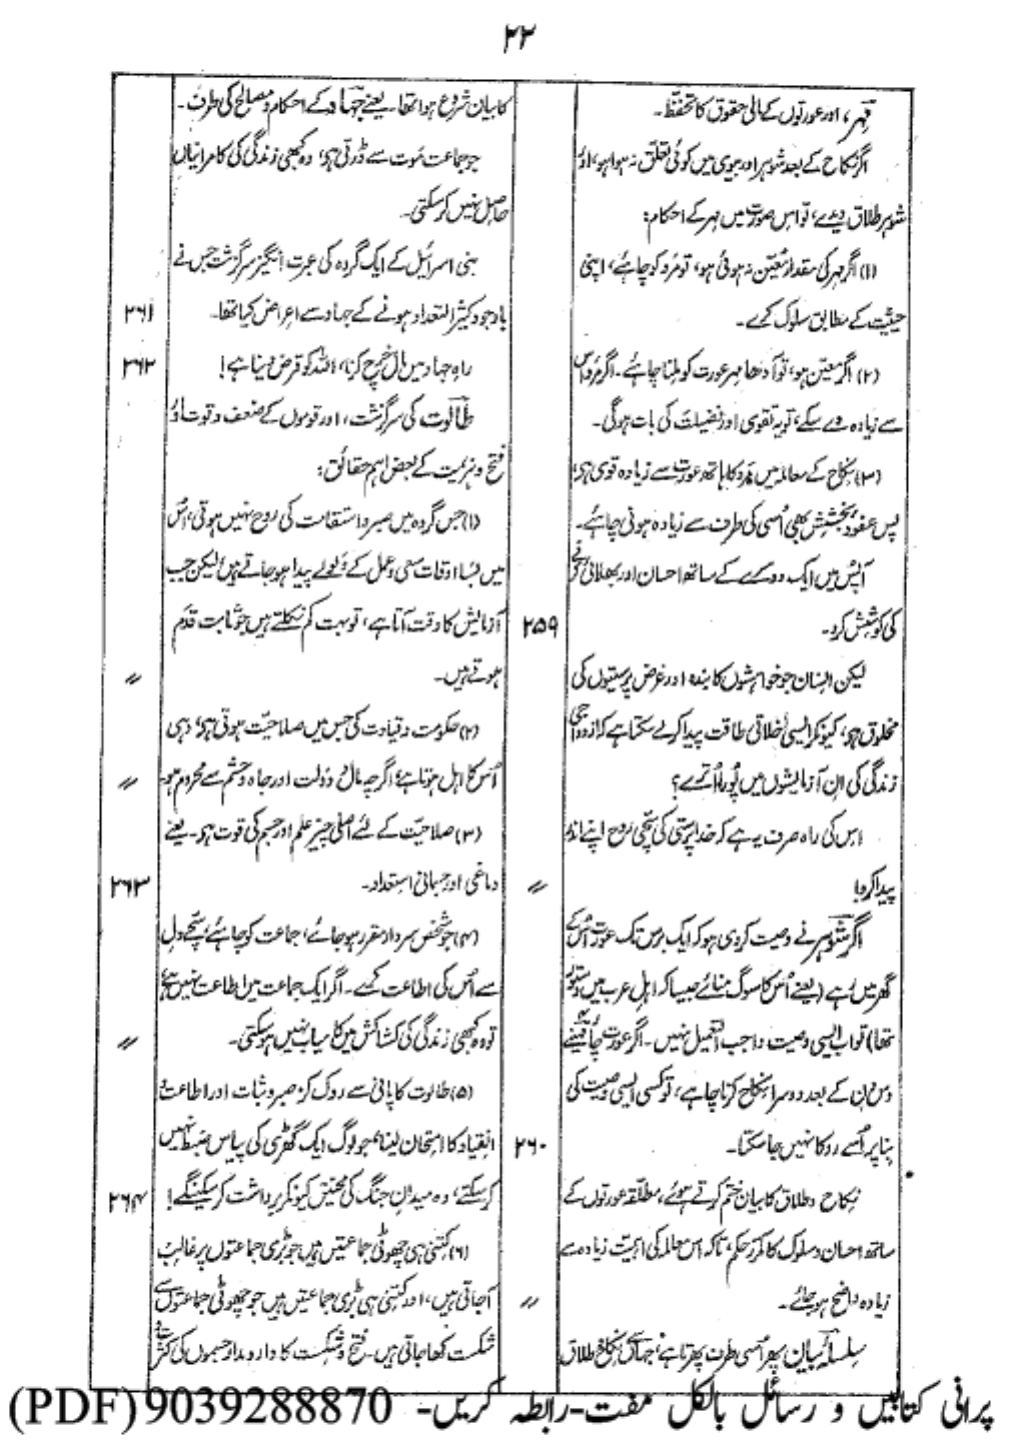 ۲۲
مہر، اور عورتوں کے مالی حقوق کا تحفظ۔
اگر نکاح کے بعد شوہر اور بیوی میں کوئی تعلق نہ ہوا ہو، اور
شوہر طلاق دیدے، تو اس صورت میں مہر کے احکام:
(۱) اگر مہر کی مقدار معین نہ ہوئی ہو، تو مرد کو چاہئے، اپنی
حیثیت کے مطابق سلوک کرے۔
(۲) اگر معین ہو، تو آدھا مہر عورت کو ملنا چاہئے۔ اگر مرد اس
سے زیادہ دے سکے، تو یہ تقوی اور فضیلت کی بات ہوگی۔
(۳) نکاح کے معاملہ میں مرد کا ہاتھ عورت سے زیادہ قوی ہے،
پس عفو و بخشش بھی اُسی کی طرف سے زیادہ ہونی چاہئے۔
آپس میں ایک دوسرے کے ساتھ احسان اور بھلائی کرنے
کی کوشش کرو۔ ۲۵۹
لیکن انسان جو خواہشوں کا بندہ اور غرض پرستیوں کی
مخلوق ہے، کیونکر ایسی اخلاقی طاقت پیدا کر لے سکتا ہے کہ ازدواجی
زندگی کی ان آزمایشوں میں پورا اُترے؟
اس کی راہ صرف یہ ہے کہ خدا پرستی کی سچی روح اپنے اندر
پیدا کرو! ״
اگر شوہر نے وصیت کر دی ہو کہ ایک برس تک عورت اُس کے
گھر میں رہے (یعنے اُس کا سوگ منائے جیسا کہ اہل عرب میں دستور
تھا) تو اب ایسی وصیت واجب التعمیل نہیں۔ اگر عورت چار مہینے
دس دن کے بعد دوسرا نکاح کرنا چاہے، تو کسی ایسی وصیت کی
بنا پر اُسے روکا نہیں جا سکتا۔ ۲۶۰
نکاح و طلاق کا بیان ختم کرتے ہوئے، مطلقہ عورتوں کے
ساتھ احسان و سلوک کا مکرر حکم، تاکہ اس معاملہ کی اہمیت زیادہ سے
زیادہ واضح ہو جائے۔ ״
سلسلۂ بیان پھر اُسی طرف پھرتا ہے، جہاں سے نکاح و طلاق
کا بیان شروع ہوا تھا۔ یعنے جہاد کے احکام و مصالح کی طرف۔
جو جماعت موت سے ڈرتی ہے، وہ کبھی زندگی کی کامرانیاں
حاصل نہیں کر سکتی۔
بنی اسرائیل کے ایک گروہ کی عبرت انگیز سرگزشت جس نے
باوجود کثیر التعداد ہونے کے جہاد سے اعراض کیا تھا۔ ۲۶۱
راہِ جہاد میں مال خرچ کرنا، اللہ کو قرض دینا ہے! ۲۶۲
طالوت کی سرگزشت، اور قوموں کے ضعف و قوت اور
فتح و ہزیمت کے بعض اہم حقائق:
(۱) جس گروہ میں صبر و استقامت کی روح نہیں ہوتی، اُس
میں بسا اوقات سعی و عمل کے ولولے پیدا ہو جاتے ہیں لیکن جب
آزمایش کا وقت آتا ہے، تو بہت کم نکلتے ہیں جو ثابت قدم
ہوتے ہیں۔ ״
(۲) حکومت و قیادت کی جس میں صلاحیت ہوتی ہے، وہی
اُس کا اہل ہوتا ہے، اگرچہ مال و دولت اور جاہ و حشم سے محروم ہو۔ ״
(۳) صلاحیت کے لئے اصلی چیز علم اور جسم کی قوت ہے۔ یعنے
دماغی اور جسمانی استعداد۔ ۲۶۳
(۴) جو شخص سردار مقرر ہو جائے، جماعت کو چاہئے، سچے دل
سے اُس کی اطاعت کرے۔ اگر ایک جماعت میں اطاعت نہیں ہے
تو وہ کبھی زندگی کی کشاکش میں کامیاب نہیں ہو سکتی۔ ״
(۵) طالوت کا پانی سے روک کر صبر و ثبات اور اطاعت و
انقیاد کا امتحان لینا، جو لوگ ایک گھڑی کی پیاس ضبط نہیں
کر سکتے، وہ میدانِ جنگ کی محنتیں کیونکر برداشت کر سکینگے! ۲۶۴
(۶) کتنی ہی چھوٹی جماعتیں ہیں جو بڑی جماعتوں پر غالب
آجاتی ہیں، اور کتنی ہی بڑی جماعتیں ہیں جو چھوٹی جماعتوں سے
شکست کھا جاتی ہیں۔ فتح و شکست کا دار و مدار جسموں کی کثرت
پرانی کتابیں و رسائل بالکل مفت-رابطہ کریں- 9039288870 (PDF)